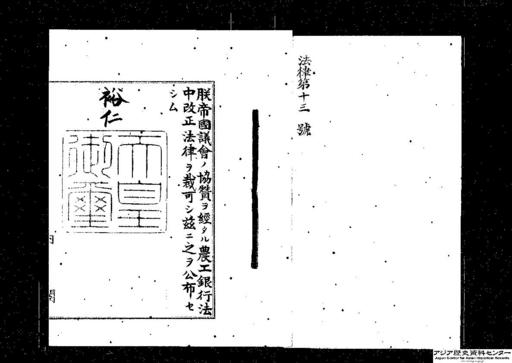 法律第十三號
朕帝國議會ノ協贊ヲ經タル農工銀行法
中改正法律ヲ裁可シ茲ニ之ヲ公布セ
シム
裕仁
天皇
御璽
内閣
アジア歴史資料センター
Japan Center for Asian Historical Records